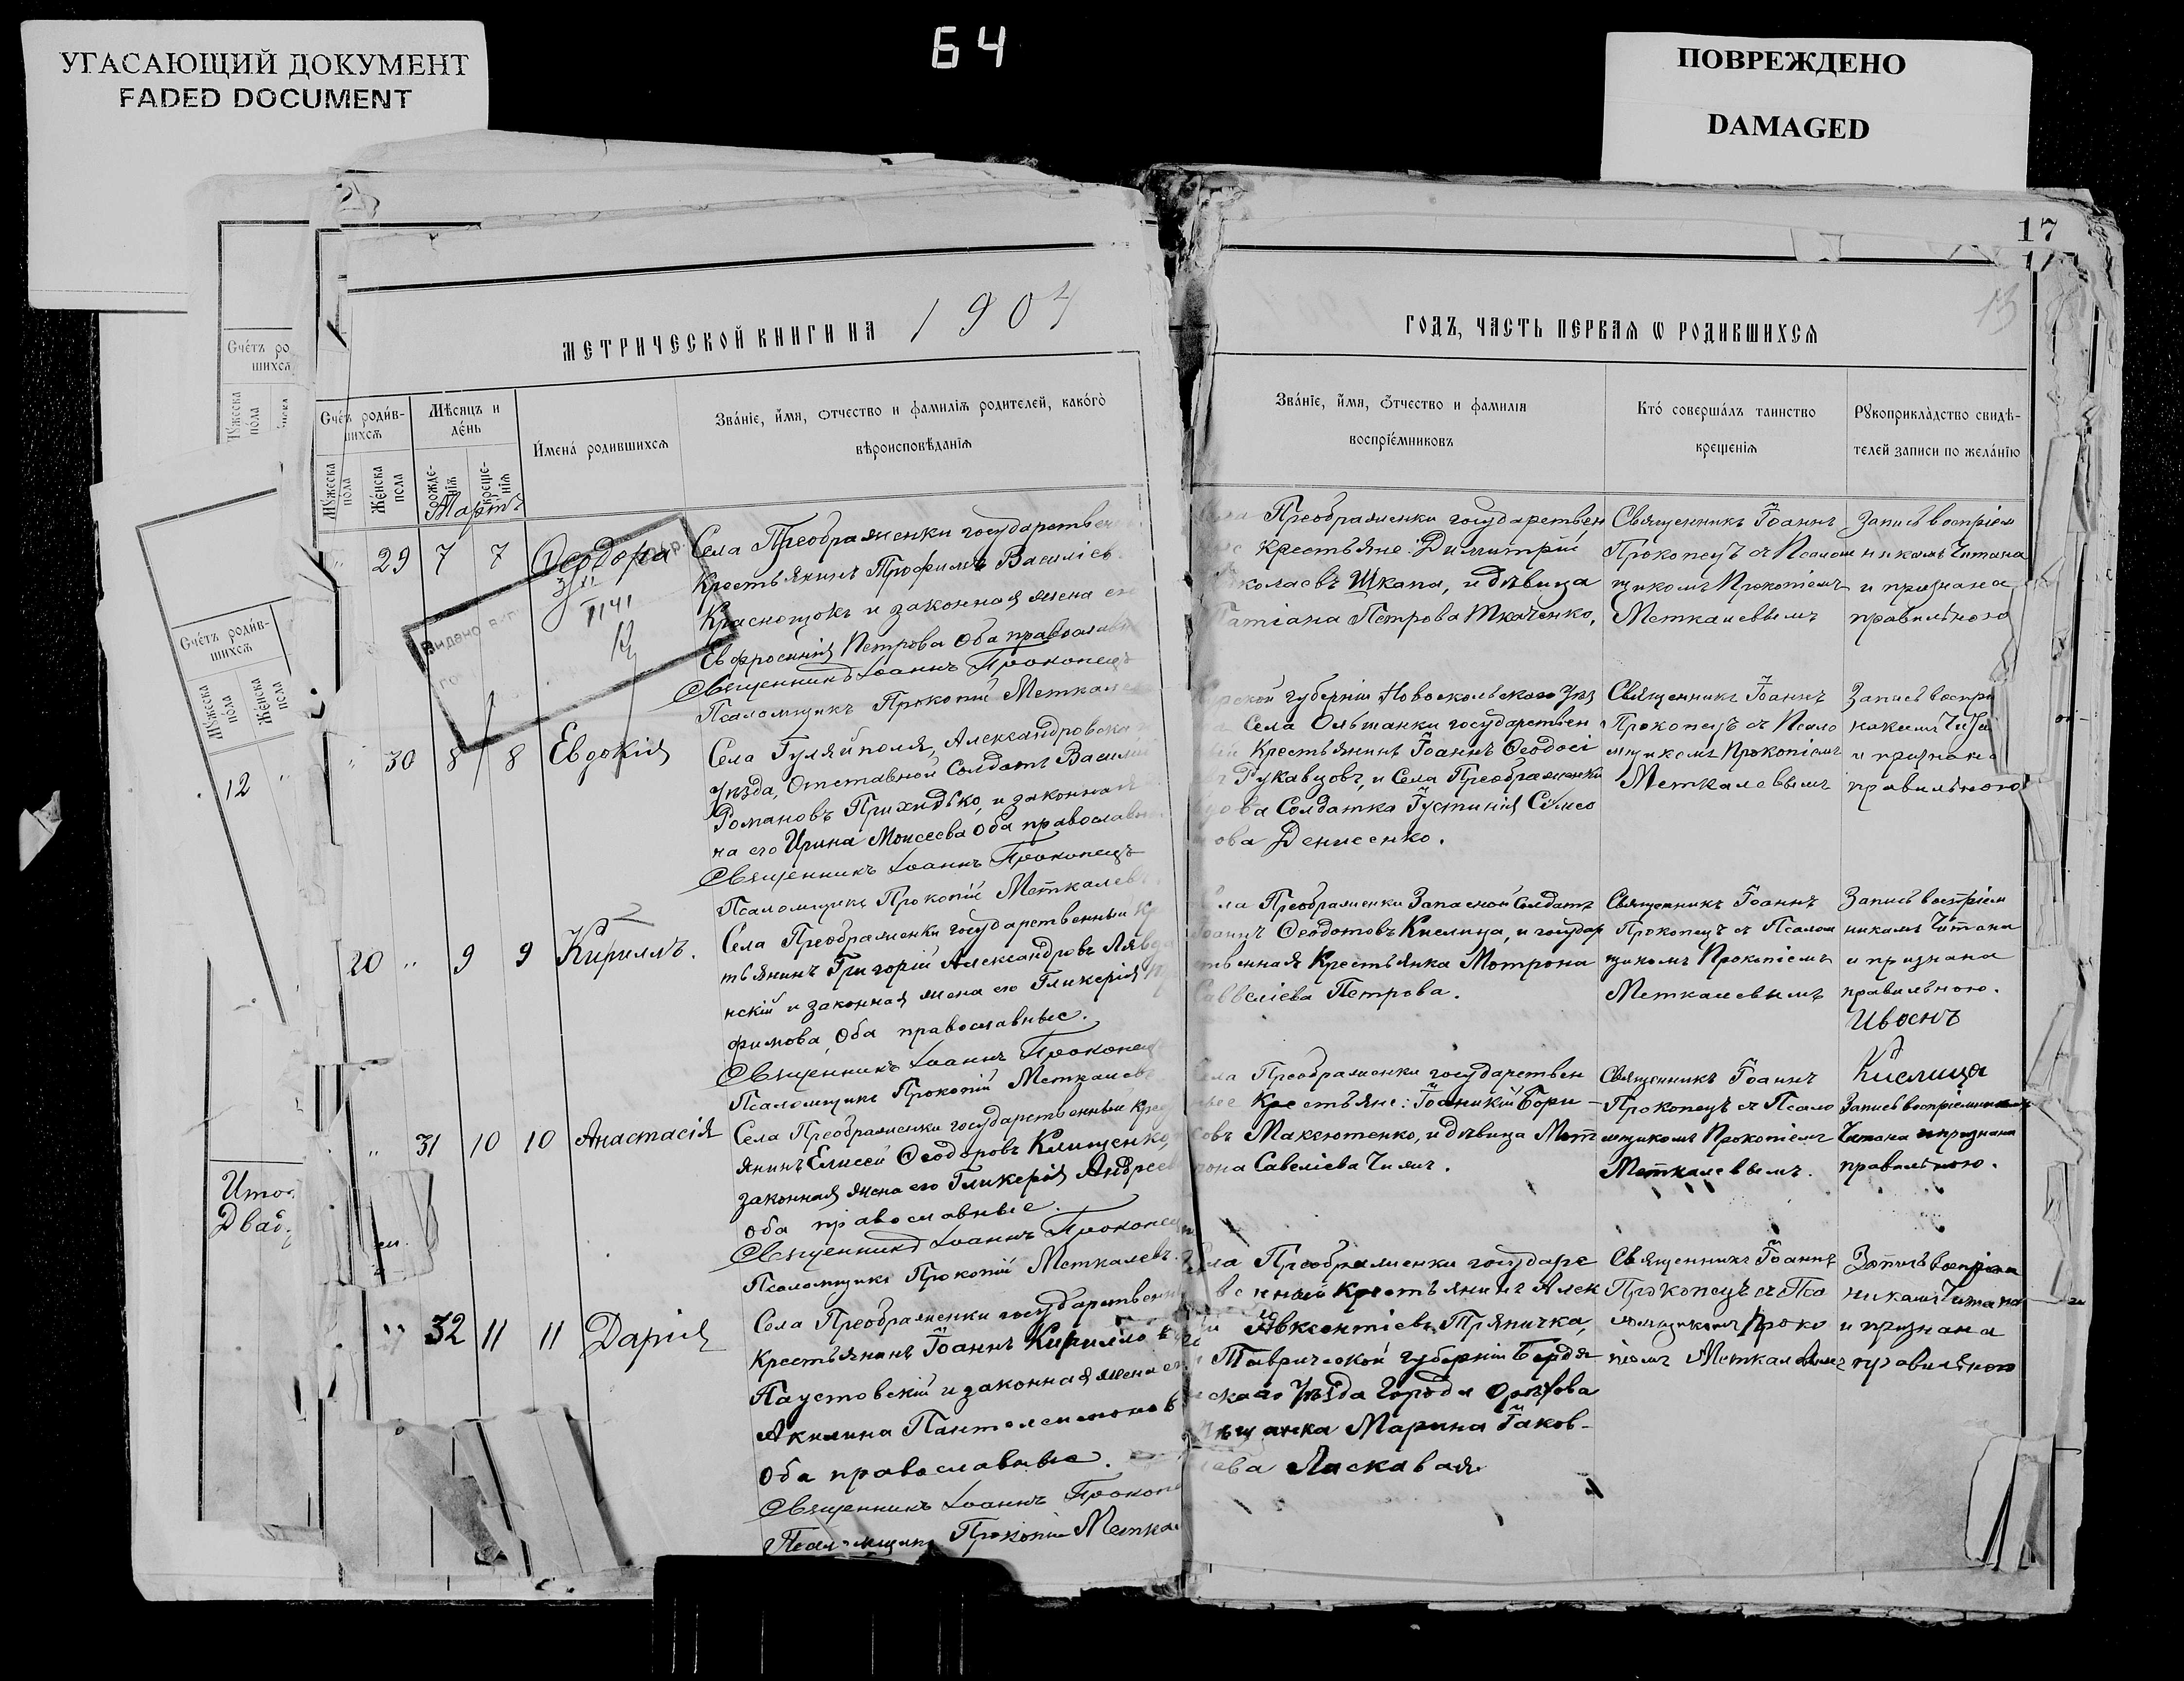 УГАСАЮЩИЙ ДОКУМЕНТ
FADED DOCUMENT
64
ПОВРЕЖДЕНО
DAMAGED
17
13
МЕТРИЧЕСКОЙ КНИГИ НА 1904
ГОДЪ, ЧАСТЬ ПЕРВАЯ Ѡ РОДИВШИХСЯ
Счетъ родив-
шихся
Мужеска пола
Женска пола
Мѣсяцъ и
день
рожде-
нія
креще-
нія
Имена родившихся
Званіе, имя, отчество и фамилія родителей, какого
вѣроисповѣданія
Званіе, имя, отчество и фамилія
воспріемниковъ
Кто совершалъ таинство
крещенія
Рукоприкладство свидѣ-
телей записи по желанію
Мартъ
29 7 7 Ѳеодора
Села Преображенки государствен
Крестьянинъ Трофимъ Василіев
и законная жена его
Евфросинія Петрова Оба православн
Священникъ Іоаннъ Прокопецъ
Псаломщикъ Прокопій Меткалев
Преображенки государствен
Крестьяне: Димитрій
Шкапа, и дѣвица
Татіана Петрова Ткаченко.
Священникъ Іоаннъ
Прокопецъ съ Псалом
щикомъ Прокопіемъ
Меткалевымъ
Запись воспріем
никамъ Читана
и признана
правильною
30 8 8 Евдокія
Села Гуляйполя, Александровска
уѣзда, Отставной Солдатъ Василій
Романовъ Приходько, и законная
на его Ирина Моисеева Оба православн
Священникъ Іоаннъ Прокопецъ
Псаломщикъ Прокопій Меткалев
губерніи Новооскольскаго Уѣз
Села Ольшанки государствен
Крестьянинъ Іоаннъ Ѳеодосі
Рукавцовъ, и Села Преображенки
Солдатка Іустинія Симео
нова Денисенко.
Священникъ Іоаннъ
Прокопецъ съ Псало
мщикомъ Прокопіемъ
Меткалевымъ
Запись воспрі
и признана
правильною
20 " 9 9 Кириллъ.
Села Преображенки государственный Кр
тьянинъ Григорій Александровъ
нскій и законная жена его Гликерія
фимова, Оба православные.
Священникъ Іоаннъ Прокопецъ
Псаломщикъ Прокопій Меткалев
Села Преображенки Запасной Солдатъ
Іоаннъ Ѳеодотовъ Кислица, и государ
ственная Крестьянка Мотрона
Савеліева Петрова.
Священникъ Іоаннъ
Прокопецъ съ Псалом
щикомъ Прокопіемъ
Меткалевымъ
Запись воспріем
никамъ Читана
и признана
правильною.
Кислица
" 31 10 10 Анастасія
Села Преображенки государственный Крес
янинъ Елисей Ѳеодоровъ Клищенко,
законная жена его Гликерія Андреев
Оба православные.
Священникъ Іоаннъ Прокопец
Псаломщикъ Прокопій Меткалевъ
Села Преображенки государствен
ные Крестьяне: Іоанникій Бори-
совъ Максютенко, и дѣвица Мот
рона Савеліева Чижъ.
Священникъ Іоаннъ
Прокопецъ съ Псало
мщикомъ Прокопіемъ
Меткалевымъ.
Запись воспріемникамъ
Читана и признана
правильною.
" 32 11 11 Дарія
Села Преображенки государственн
Крестьянинъ Іоаннъ Кирилловъ
Паустовскій и законная жена ег
Акилина Пантелеимонов
Оба православные.
Священникъ Іоаннъ Прокопе
Псаломщикъ Прокопій Меткал
Села Преображенки государс
венный Крестьянинъ Алек
Авксентіевъ Тряпичка,
Таврической губерніи Бердя
нскаго Уѣзда города Орѣхова
Мѣщанка Марина Іаков-
лева Ласкавая
Священникъ Іоаннъ
Прокопецъ съ Пса
ломщикомъ Проко
піемъ Меткалевымъ
Запись воспріем
никамъ Читана
и признана
правильною
Счетъ родив-
шихся
Мужеска пола
Женска пола
12
Итог
Двад